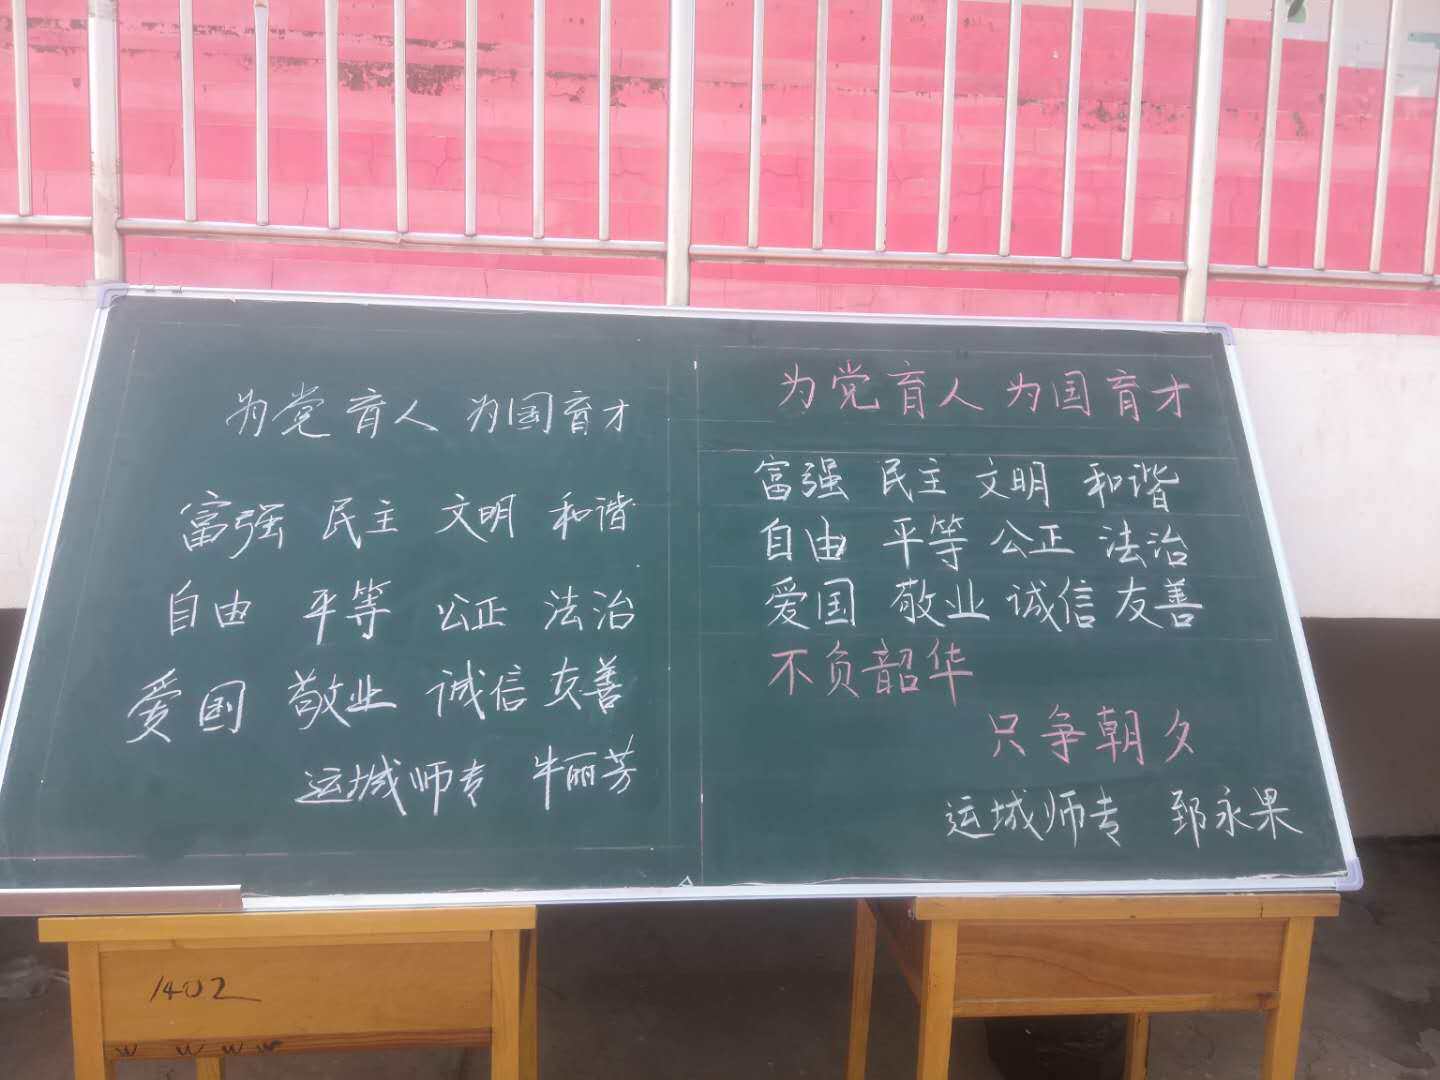 为党育人 为国育才
富强 民主 文明 和谐
自由 平等 公正 法治
爱国 敬业 诚信 友善
运城师专 牛丽芳
为党育人 为国育才
富强 民主 文明 和谐
自由 平等 公正 法治
爱国 敬业 诚信 友善
不负韶华
只争朝夕
运城师专 郅永果
1402
w w w w